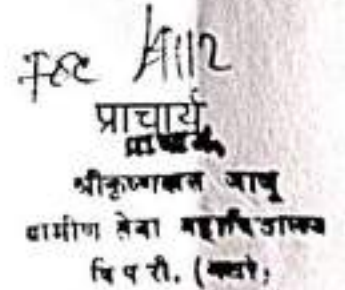 प्राचार्य
प्राचार्य
श्रीकृष्णदास जाजू
ग्रामीण सेवा महाविद्यालय
पिपरी, (वर्धा)